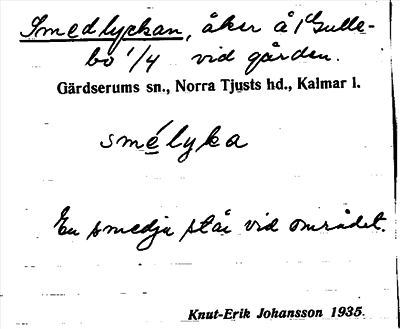 Smedlyckan, åker å 1 Gulle-
bo 1/4 vid gården.
Gärdserums sn., Norra Tjusts hd., Kalmar l.
smélyka
En smedja står vid området.
Knut-Erik Johansson 1935.